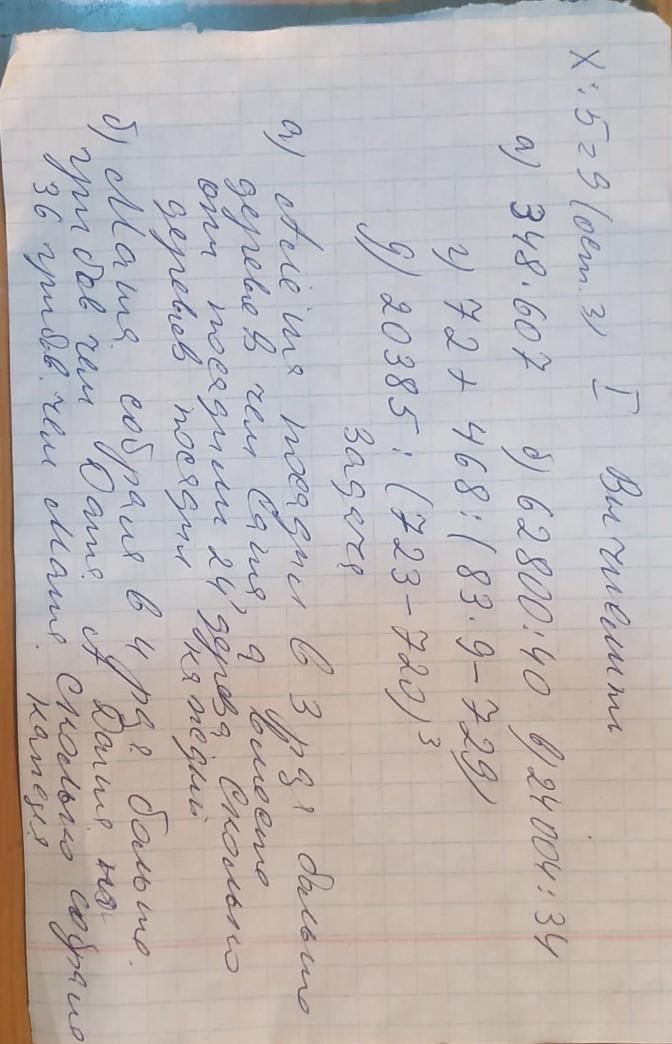 I Вычислить
X : 5 = 9 (ост. 3)
а) 348·607 б) 62800:40 в) 24004:34
г) 72 + 468:(83·9-729)
д) 20385:(723-720)³
Задача
а) Алёша посадил в 3 раза больше
деревьев чем Саша, а вместе
они посадили 24 дерева Сколько
деревьев посадил каждый
б) Маша собрала в 4 раза больше.
грибов чем Даша. А Даша на
36 грибов. чем Маша. Сколько собрала
каждая